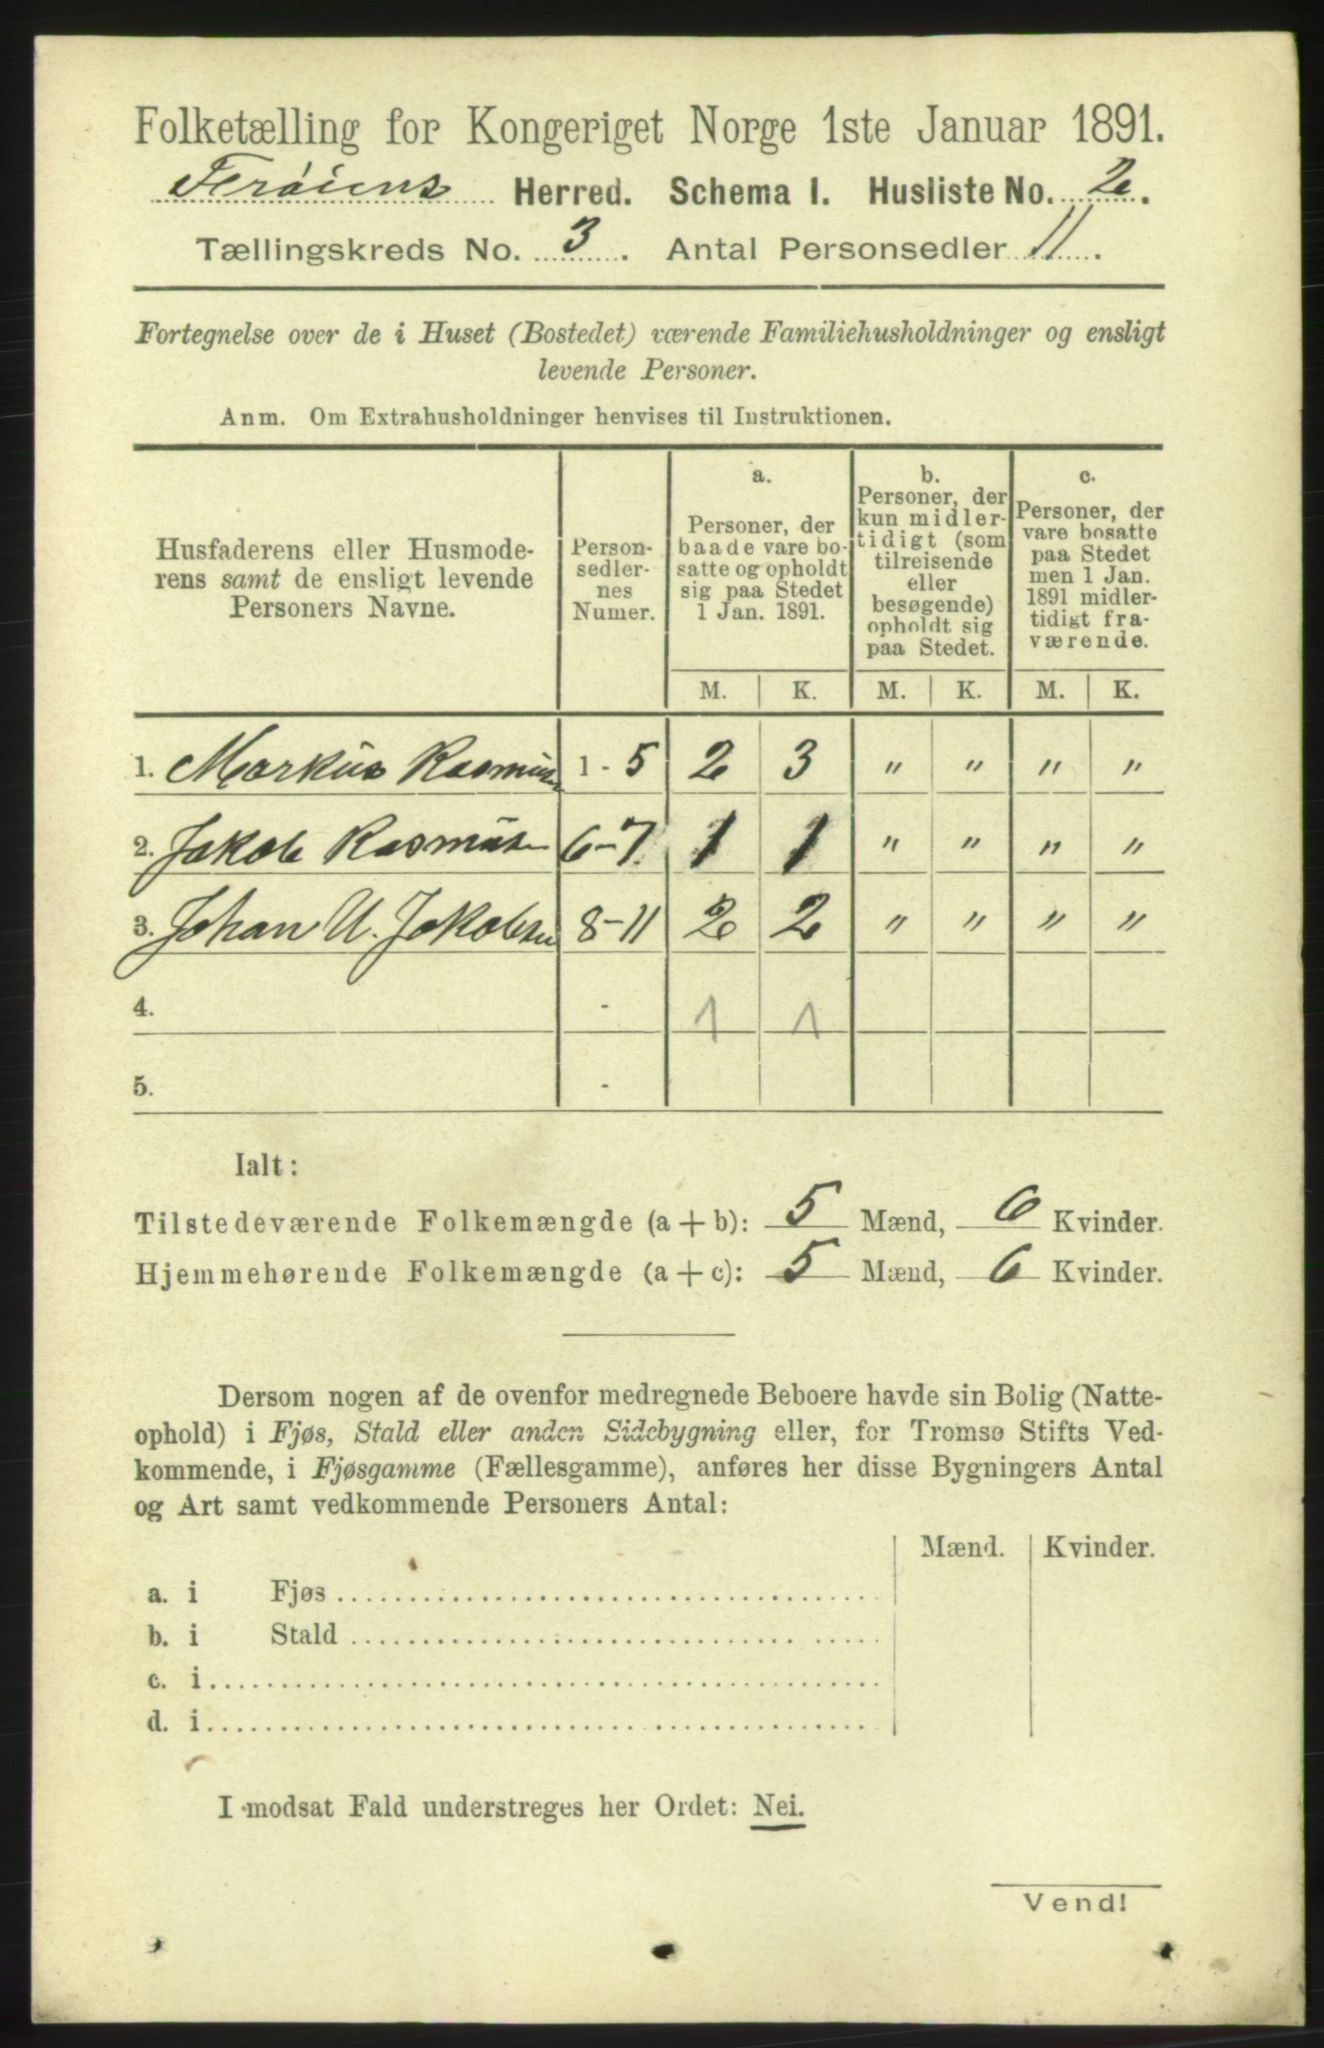 Folketælling for Kongeriget Norge 1ste Januar 1891.
Herred. Schema I. Husliste No. 2.
Tællingskreds No. 3. Antal Personsedler 11.
Fortegnelse over de i Huset (Bostedet) værende Familiehusholdninger og ensligt
levende Personer.
Anm. Om Extrahusholdninger henvises til Instruktionen.
Husfaderens eller Husmode-
rens samt de ensligt levende
Personers Navne.
Person-
sedler-
nes
Numer.
a.
Personer, der
baade vare bo-
satte og opholdt
sig paa Stedet
1 Jan. 1891.
b.
Personer, der
kun midler-
tidigt (som
tilreisende
eller
besøgende)
opholdt sig
paa Stedet.
c.
Personer, der
vare bosatte
paa Stedet
men 1 Jan.
1891 midler-
tidigt fra-
værende.
M. K. M. K. M. K.
1. Markus Rasmusen 1 - 5 2 3 " " " "
2. Jakob Rasmusen 6-7 1 1 " " " "
3. Johan U. Jakobsen 8-11 2 2 " " " "
4. - 1 1
5. -
Ialt:
Tilstedeværende Folkemængde (a + b): 5 Mænd, 6 Kvinder.
Hjemmehørende Folkemængde (a + c): 5 Mænd, 6 Kvinder.
Dersom nogen af de ovenfor medregnede Beboere havde sin Bolig (Natte-
ophold) i Fjøs, Stald eller anden Sidebygning eller, for Tromsø Stifts Ved-
kommende, i Fjøsgamme (Fællesgamme), anføres her disse Bygningers Antal
og Art samt vedkommende Personers Antal:
Mænd. Kvinder.
a. i Fjøs
b. i Stald
c. i
d. i
I modsat Fald understreges her Ordet: Nei.
Vend!